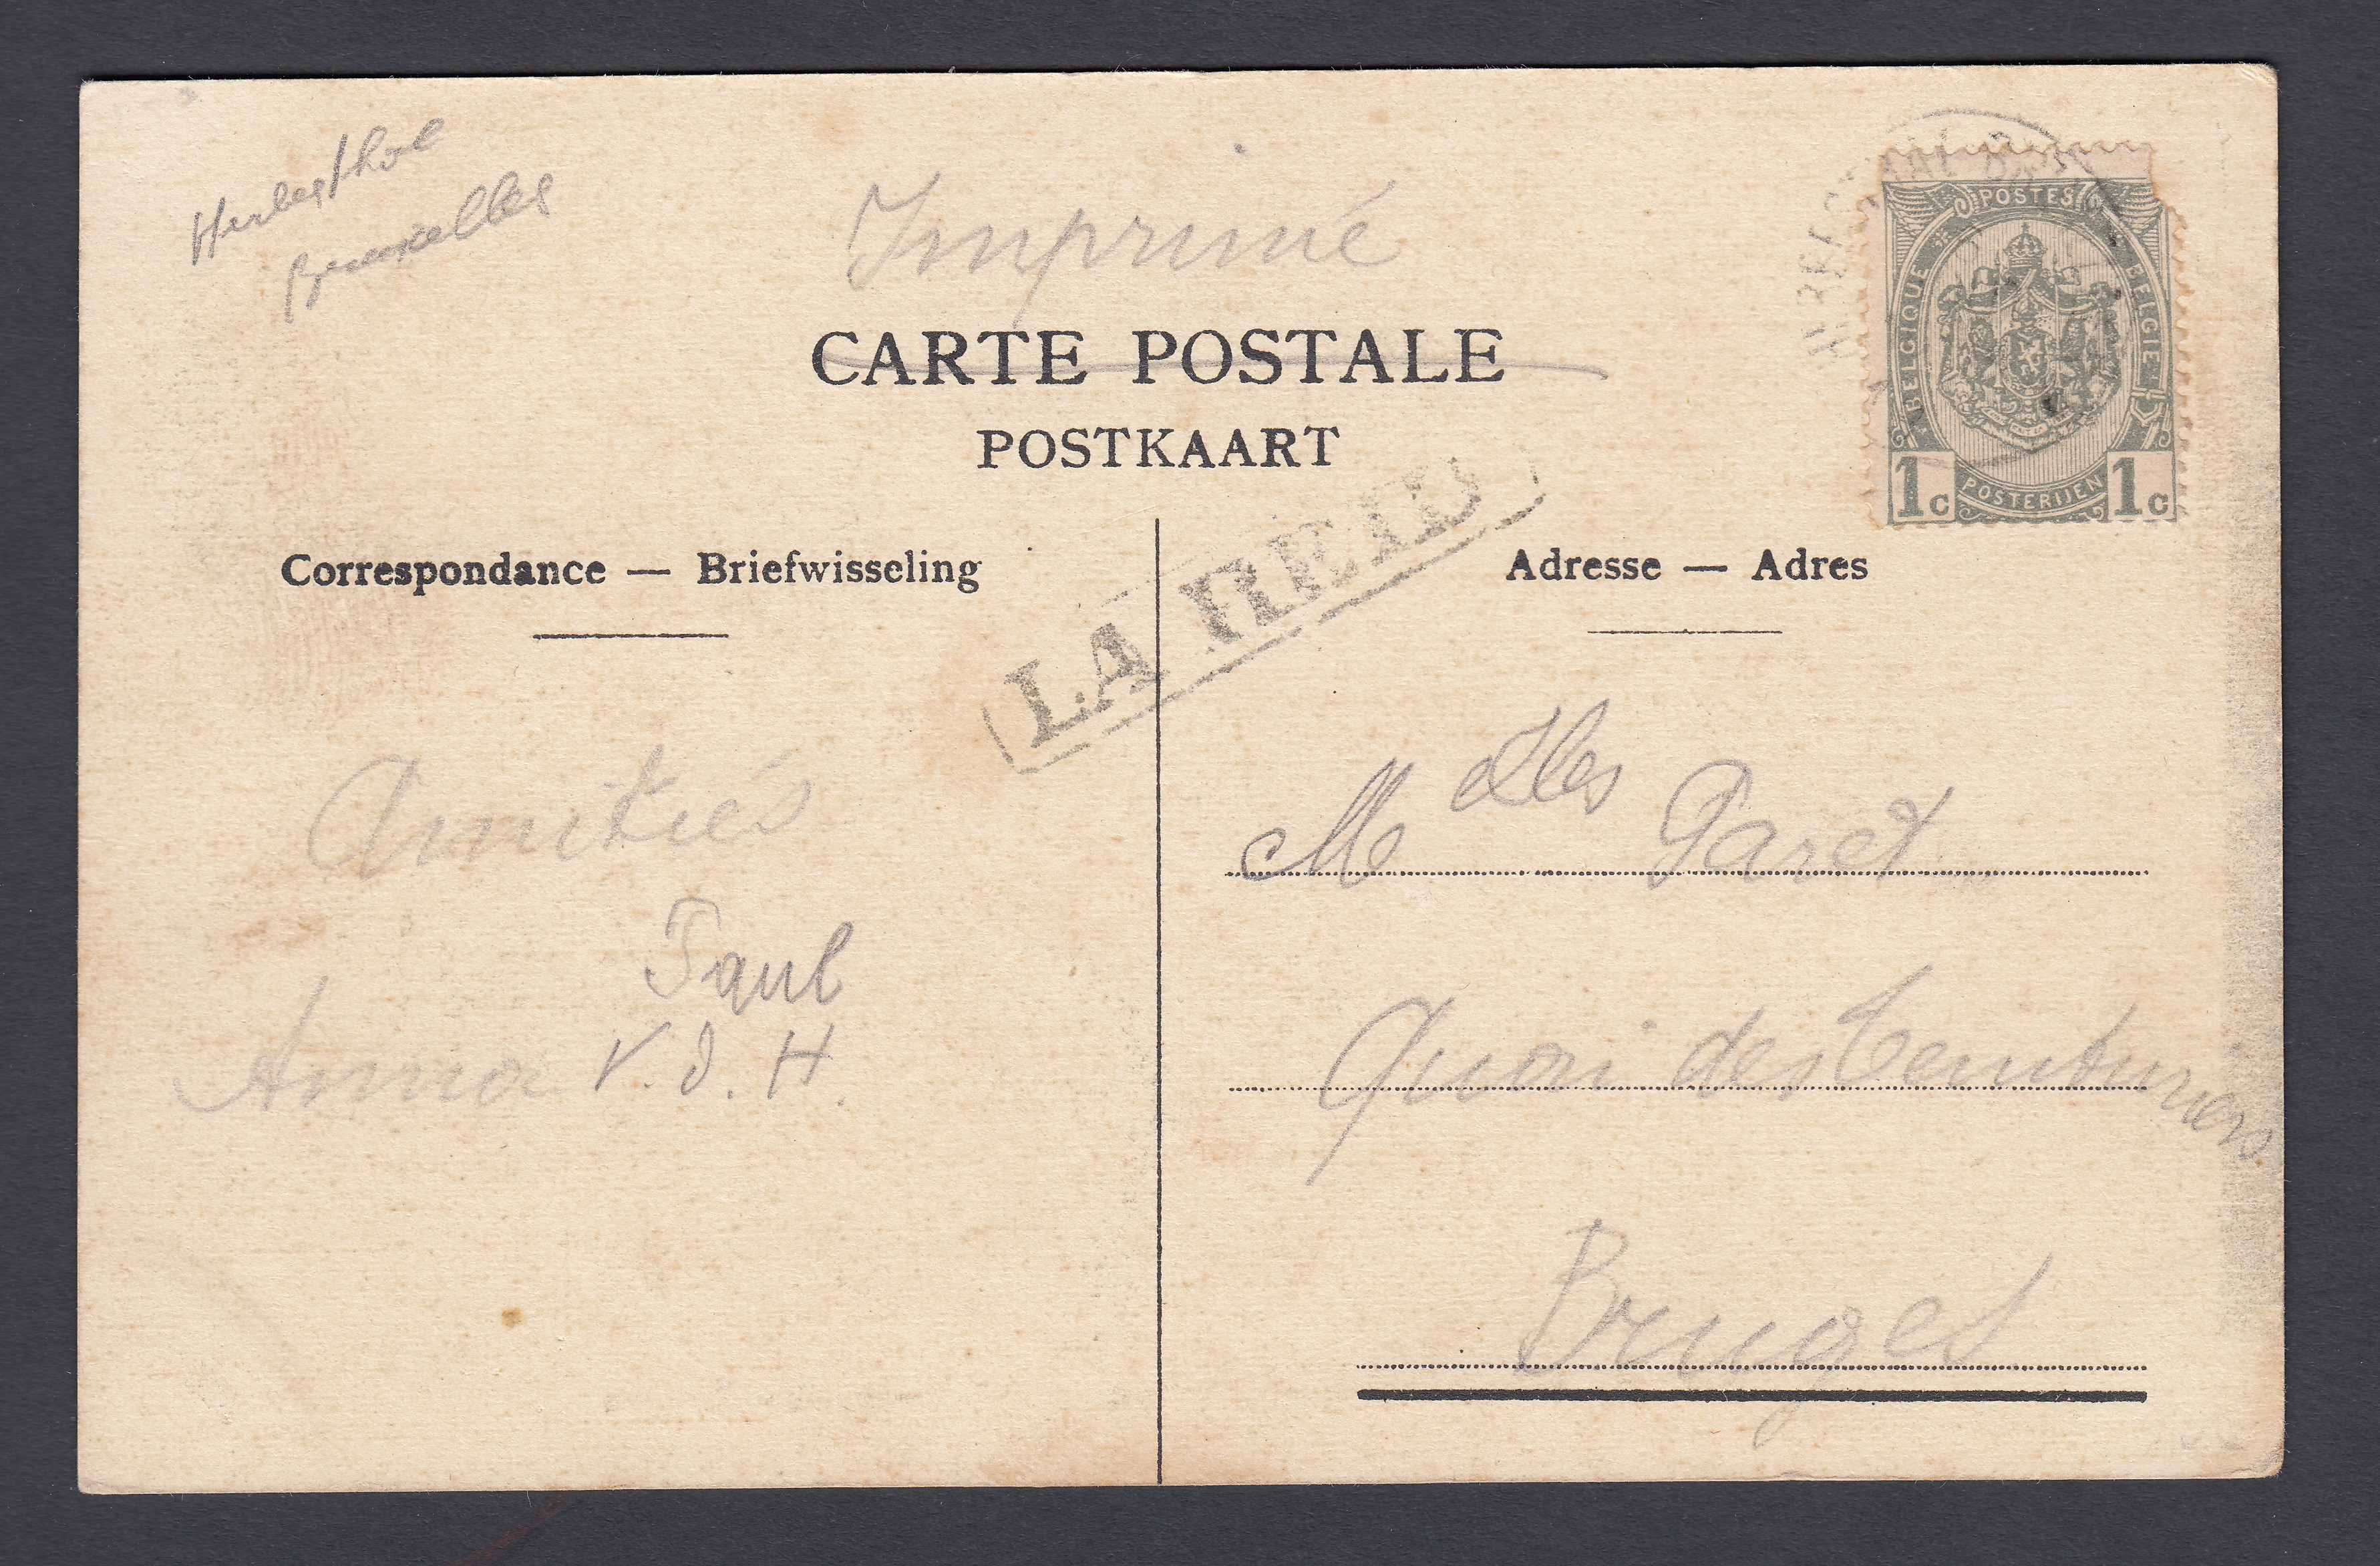 Herbesthal
Bruxelles
Imprimé
CARTE POSTALE
POSTKAART
POSTES
BELGIQUE
BELGIE
1c
POSTERIJEN
1c
Correspondance — Briefwisseling
Adresse — Adres
LA REID
Amitiés
Paul
Anna V. d. H.
Mdlles Paret
Quai des Teinturiers
Bruges